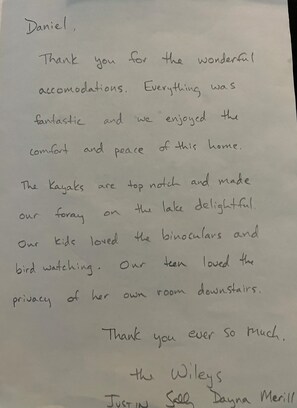 Daniel,
Thank you for the wonderful
accomodations. Everything was
fantastic and we enjoyed the
comfort and peace of this home.
The Kayaks are top notch and made
our foray on the lake delightful.
Our kids loved the binoculars and
bird watching. Our teen loved the
privacy of her own room downstairs.
Thank you ever so much.
the Wileys
Justin Sally Dayna Merill